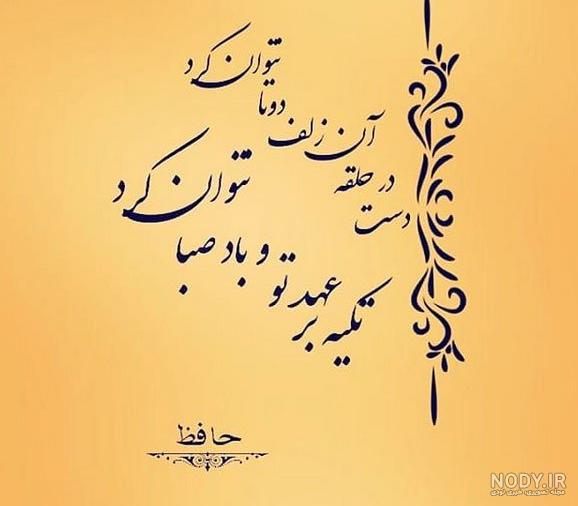 دست در حلقه آن زلف دوتا نتوان کرد
تکیه بر عهد تو و باد صبا نتوان کرد
حافظ
NODY.IR